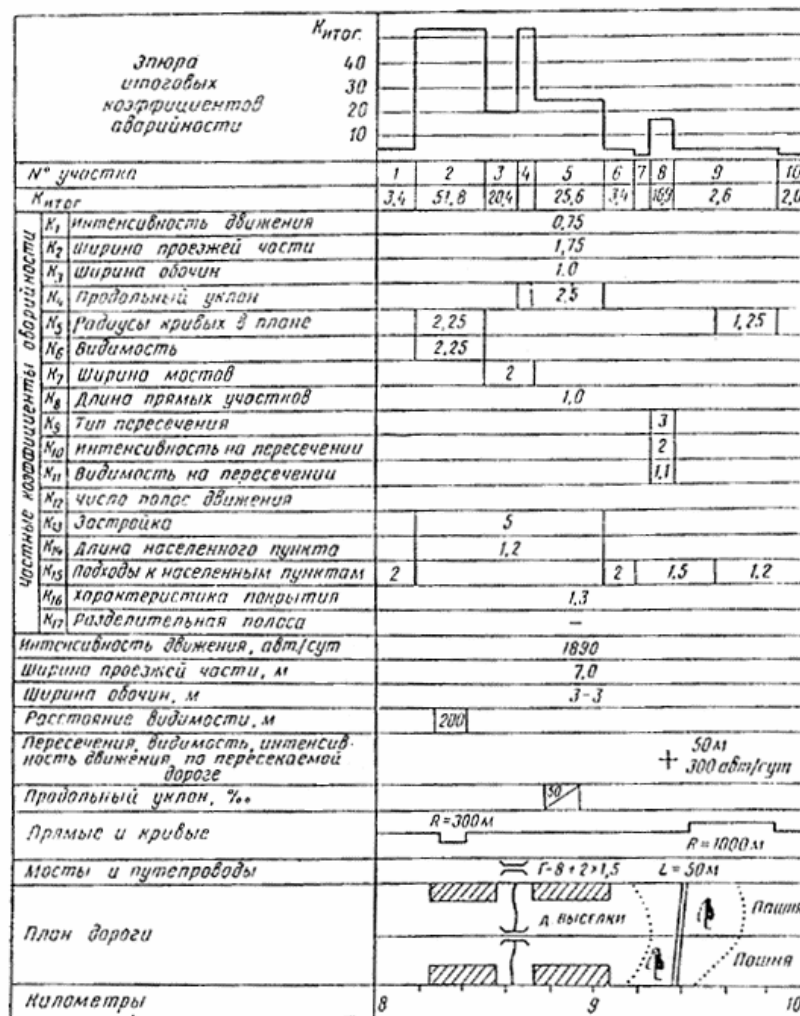 Kитог.
Эпюра
итоговых
коэффициентов
аварийности
40
30
20
10
N° участка 1 2 3 4 5 6 7 8 9 10
Kитог 3,4 51,8 20,4 25,6 3,4 16,9 2,6 2,0
Частные коэффициенты аварийности
K1 Интенсивность движения 0,75
K2 Ширина проезжей части 1,75
K3 Ширина обочин 1.0
K4 Продольный уклон 2,5
K5 Радиусы кривых в плане 2,25 1,25
K6 Видимость 2,25
K7 Ширина мостов 2
K8 Длина прямых участков 1,0
K9 Тип пересечения 3
K10 Интенсивность на пересечении 2
K11 Видимость на пересечении 1,1
K12 Число полос движения
K13 Застройка 5
K14 Длина населенного пункта 1.2
K15 Подходы к населенным пунктам 2 2 1,5 1,2
K16 Характеристика покрытия 1,3
K17 Разделительная полоса –
Интенсивность движения, авт/сут 1890
Ширина проезжей части, м 7,0
Ширина обочин, м 3-3
Расстояние видимости, м 200
Пересечения, видимость, интенсив-
ность движения, по пересекаемой
дороге
50м
300 авт/сут
Продольный уклон, ‰ 50
Прямые и кривые R=300м R=1000м
Мосты и путепроводы Г-8+2×1,5 L=50м
План дороги
д. Выселки
Пашня
Пашня
Километры 8 9 10